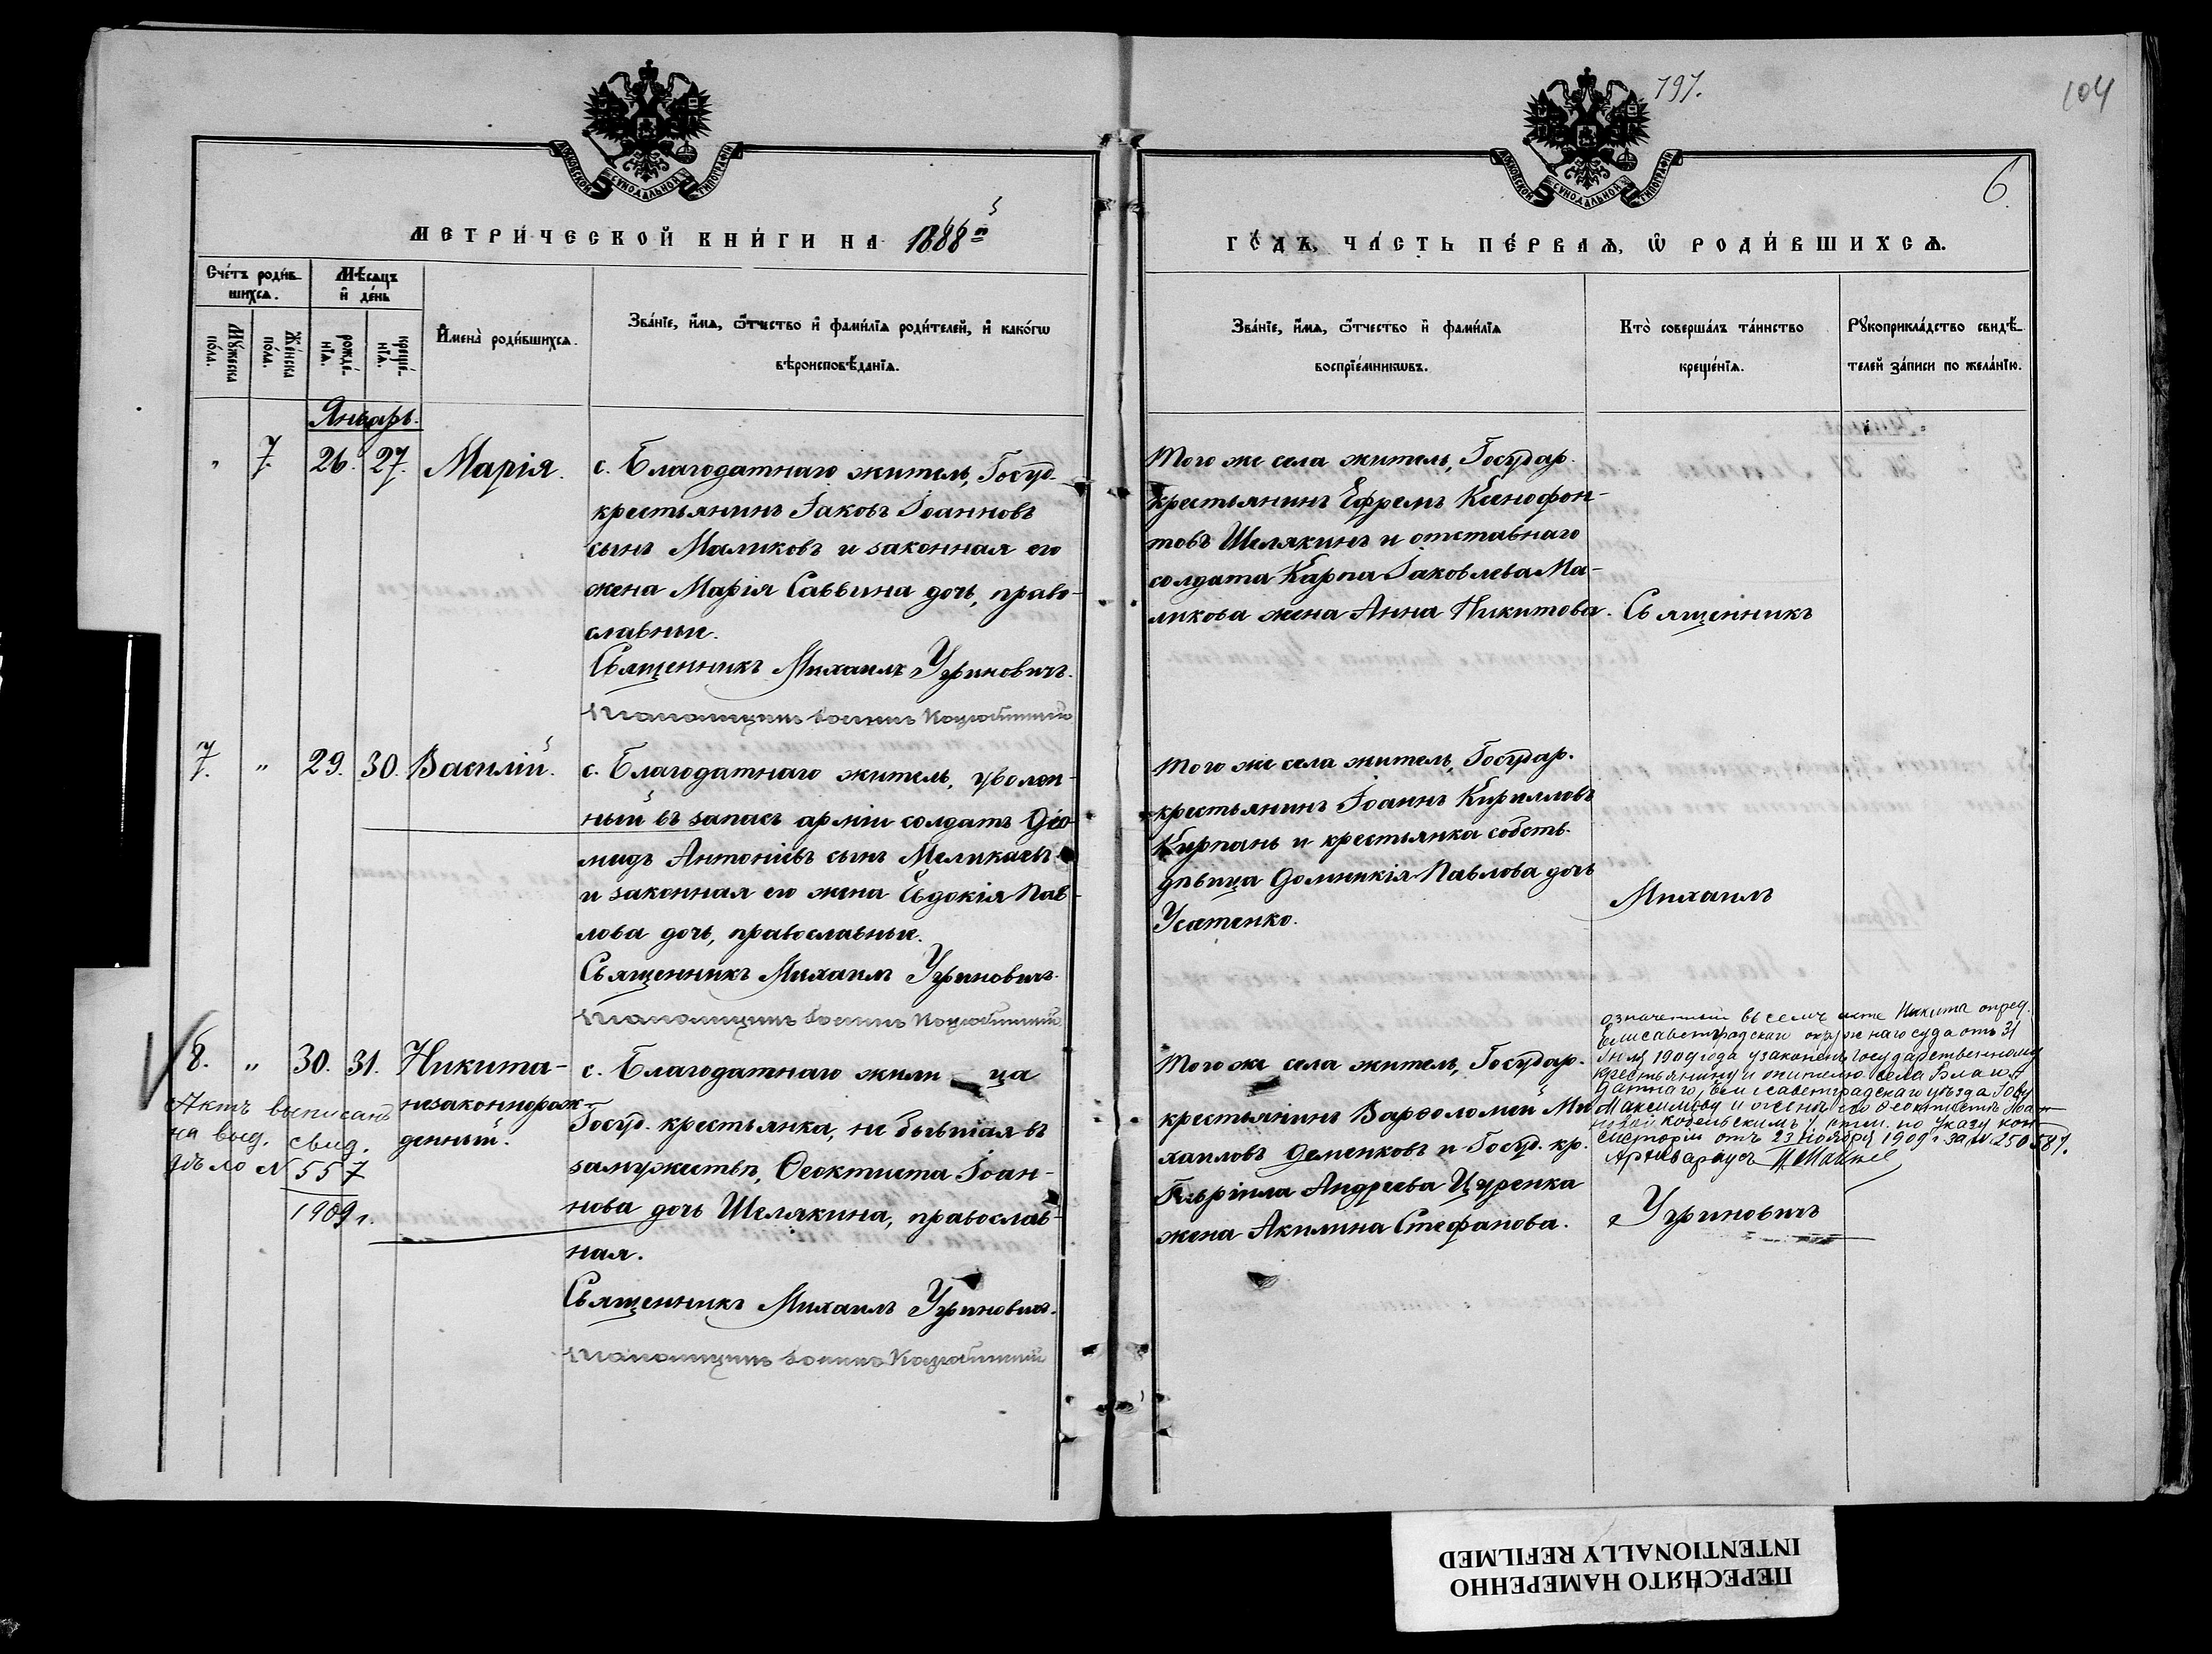 797.
104
6
МОСКОВСКОЙ СѴНОДАЛЬНОЙ ТИПОГРАФІИ
МОСКОВСКОЙ СѴНОДАЛЬНОЙ ТИПОГРАФІИ
МЕТРИ́ЧЕСКОЙ КНИ́ГИ НА 1888й
ГО́ДЪ, ЧА́СТЬ ПЕ́РВАѦ, Ѡ РОДИ́ВШИХСѦ.
Сче́тъ роди́в-
шихсѧ.
Мꙋ́жеска по́ла.
Же́нска по́ла.
Мѣ́сѧцъ и де́нь
рожде́-нїѧ.
креще́-нїѧ.
И҆мена̀ роди́вшихсѧ.
Зва́нїе, и҆́мѧ, ѻ҆́тчество и҆ фами́лїѧ роди́телей, и҆ како́гѡ
вѣроисповѣ́данїѧ.
Зва́нїе, и҆́мѧ, ѻ҆́тчество и҆ фами́лїѧ
воспрїе́мникѡвъ.
Кто̀ соверша́лъ та́инство
креще́нїѧ.
Рꙋкоприкла́дство свидѣ́-
телей за́писи по жела́нїю.
Январь.
" 7. 26. 27. Марія.
с. Благодатнаго житель, Госуд.
крестьянинъ Іаковъ Іоанновъ
сынъ Маликовъ и законная его
жена Марія Саввина дочь, право-
славные.
Священникъ Михаилъ Угриновичъ.
Того же села житель, Государ.
крестьянинъ Ефремъ Ксенофон-
товъ Шелякинъ и отставнаго
солдата Карпа Іаковлева Ма-
ликова жена Анна Никитова.
Священникъ
7. " 29. 30. Василій.
с. Благодатнаго житель, уволен-
ный въ запасъ арміи солдатъ Діо-
мидъ Антоніевъ сынъ
и законная его жена Евдокія Пав-
лова дочь, православные.
Священникъ Михаилъ Угриновичъ.
Того же села житель, Государ.
крестьянинъ Іоаннъ Кирилловъ
Кирпань и крестьянка собств.
дѣвица Домникія Павлова дочь
Усатенко.
Михаилъ
8. " 30. 31. Никита-
незаконнорож-
денный.
Актъ выписанъ
на выд. свид.
дѣло N 557
1909 г.
с. Благодатнаго жилица
Госуд. крестьянка, не бывшая въ
замужествѣ, Ѳеоктиста Іоан-
нова дочь Шелякина, православ-
ная.
Священникъ Михаилъ Угриновичъ.
Того же села житель, Государ.
крестьянинъ Варѳоломей Ми-
хаиловъ Деменковъ и Госуд. кр.
Гавріила Андреева Цуренка
жена Акилина Стефанова.
означенный въ семъ актѣ Никита опред.
Елисаветградскаго окружнаго суда отъ 31
Іюля 1909 года узаконенъ государственному
крестьянину и жителю села Благо-
датнаго, Елисаветградскаго уѣзда
Максимову и женѣ его Ѳеоктистѣ Іоан-
новой по указу кон-
систоріи отъ 23 ноября 1909 г. за № 25058
Архиваріусъ
Угриновичъ
ПЕРЕСНЯТО НАМЕРЕННО
INTENTIONALLY REFILMED